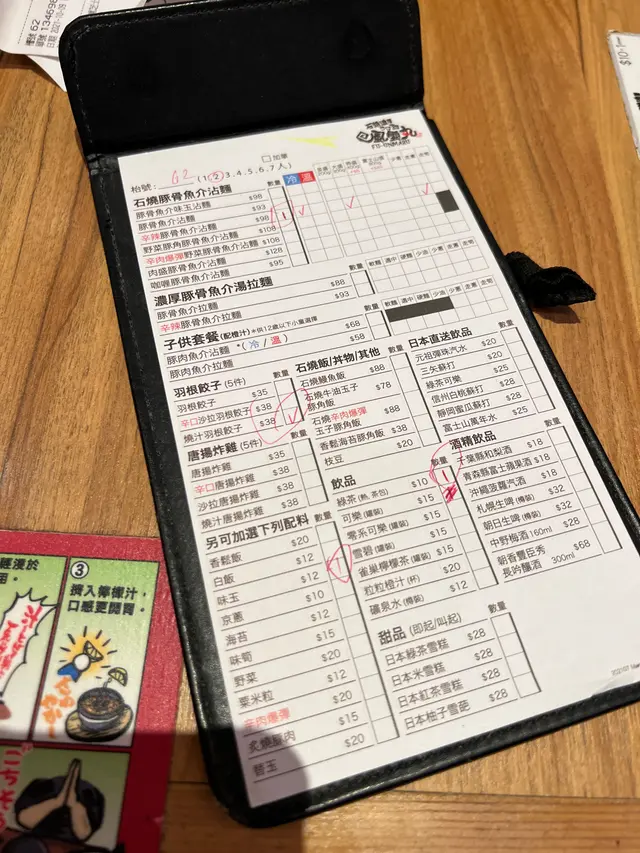 檯號 62
單號 13469
日期 2021-10-09
$10-1
石燒濃厚
風雲丸
FU-UNMARU
加單
枱號: 62 (1,2,3,4,5,6,7人)
數量 冷 溫
石燒豚骨魚介沾麵
豚骨魚介味玉沾麵 $98
豚骨魚介沾麵 $93
辛辣豚骨魚介沾麵 $98 1
野菜豚角豚骨魚介沾麵 $108
辛肉爆彈野菜豚骨魚介沾麵 $108
肉盛豚骨魚介沾麵 $128
咖喱豚骨魚介沾麵 $95
濃厚豚骨魚介湯拉麵 數量 軟麵 適中 硬麵 少油 少蔥 走蔥
豚骨魚介拉麵 $88
辛辣豚骨魚介拉麵 $93
子供套餐(配橙汁) *供12歲以下小童選擇 數量 軟麵 適中 硬麵 少油 少蔥 走蔥
豚肉魚介沾麵 *(冷/溫) $68
豚肉魚介拉麵 $58
羽根餃子 (5件) 數量
羽根餃子 $35
辛口沙拉羽根餃子 $38
燒汁羽根餃子 $38
唐揚炸雞 (5件) 數量
唐揚炸雞 $35
辛口唐揚炸雞 $38
沙拉唐揚炸雞 $38
燒汁唐揚炸雞 $38
另可加選下列配料 數量
香鬆飯 $20
白飯 $12 1
味玉 $12
京蔥 $10
海苔 $12
味筍 $15
野菜 $20
粟米粒 $12
辛肉爆彈 $20
炙燒豚肉 $15
替玉 $20
石燒飯/丼物/其他 數量
石燒鰻魚飯 $88
石燒牛油玉子
豚角飯 $78
石燒辛肉爆彈
玉子豚角飯 $88
香鬆海苔豚角飯 $38
枝豆 $20
飲品 數量
綠茶 (熱,茶包) $10 1
可樂 (罐裝) $15
零系可樂 (罐裝) $15
雪碧 (罐裝) $15
雀巢檸檬茶 (罐裝) $15
粒粒橙汁 (杯) $20
礦泉水 (樽裝) $12
甜品 (即起/叫起) 數量
日本綠茶雪糕 $28
日本米雪糕 $28
日本紅茶雪糕 $28
日本柚子雪葩 $28
日本直送飲品 數量
元祖彈珠汽水 $20
三矢蘇打 $20
綠茶可樂 $25
信州白桃蘇打 $28
靜岡蜜瓜蘇打 $28
富士山萬年水 $25
酒精飲品 數量
千葉縣和梨酒 $18
青森縣富士蘋果酒 $18
沖繩菠蘿汽酒 $18
札幌生啤 (樽裝) $32
朝日生啤 (樽裝) $32
中野梅酒 160ml $28
朝香豊臣秀
長吟釀酒 300ml $68
③
擠入檸檬汁，
口感更開胃。